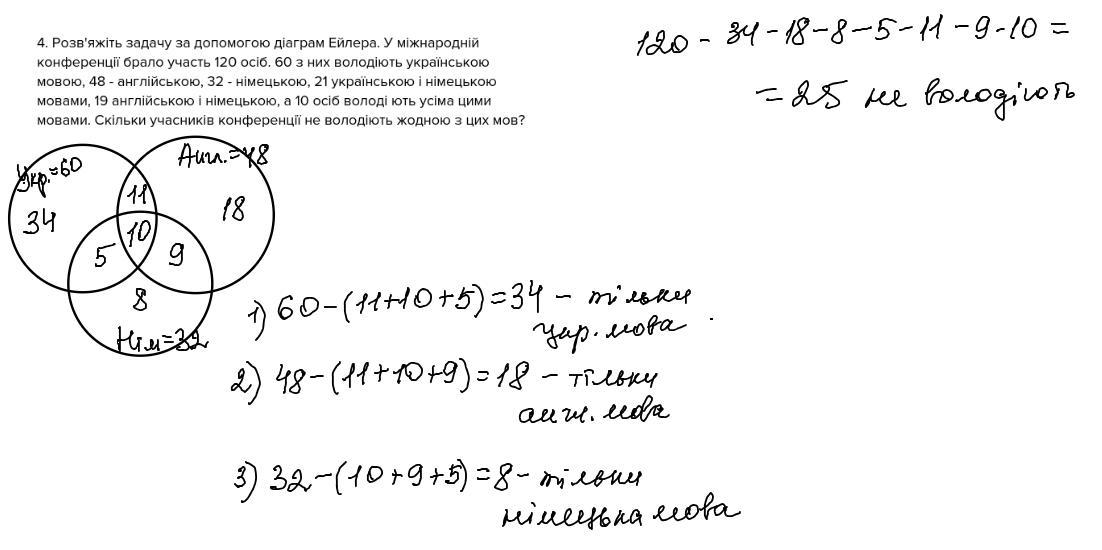 4. Розв'яжіть задачу за допомогою діаграм Ейлера. У міжнародній
конференції брало участь 120 осіб. 60 з них володіють українською
мовою, 48 - англійською, 32 - німецькою, 21 українською і німецькою
мовами, 19 англійською і німецькою, а 10 осіб володі ють усіма цими
мовами. Скільки учасників конференції не володіють жодною з цих мов?
120 - 34 - 18 - 8 - 5 - 11 - 9 - 10 =
= 25 не володіють
Укр.=60
Англ.=48
34
11
18
10
5
9
8
Нім=32
1) 60-(11+10+5)=34 - тільки
укр. мова
2) 48-(11+10+9)=18 - тільки
англ. мова
3) 32-(10+9+5)=8 - тільки
німецька мова